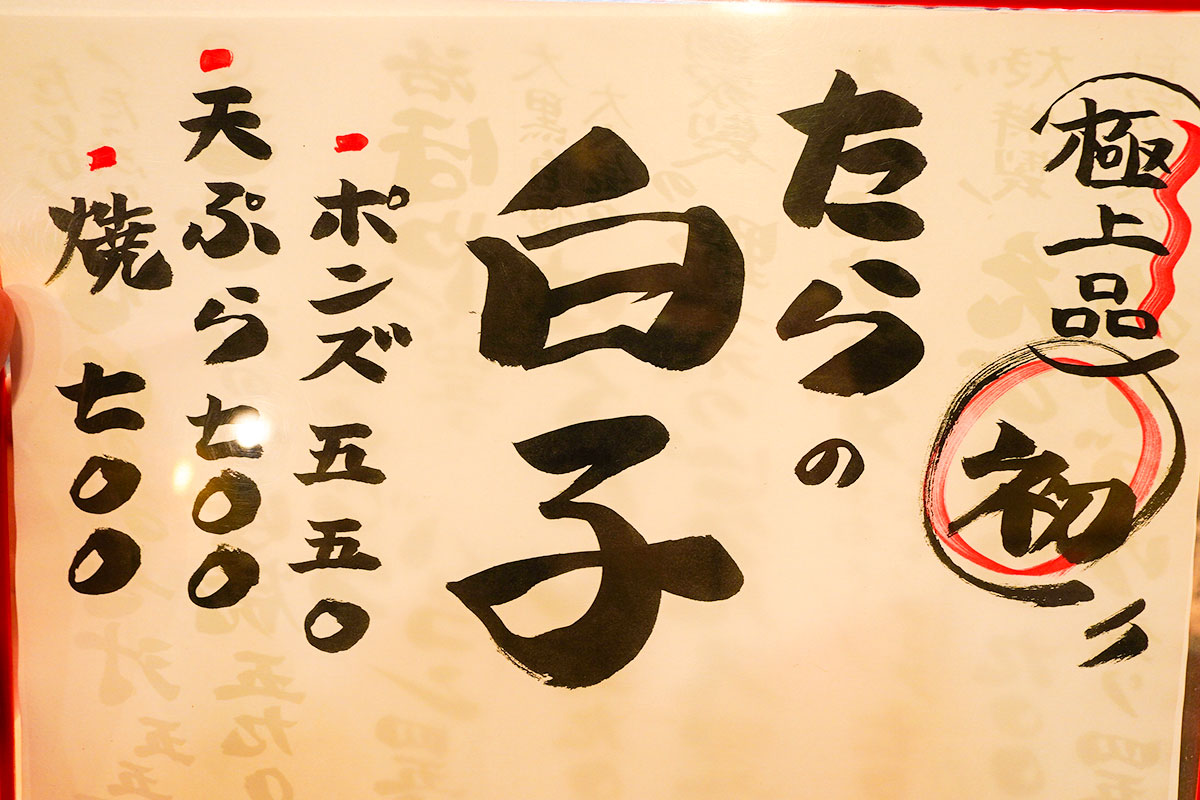 極上品
初
たらの
白子
ポンズ 五五〇
天ぷら 七〇〇
焼 七〇〇